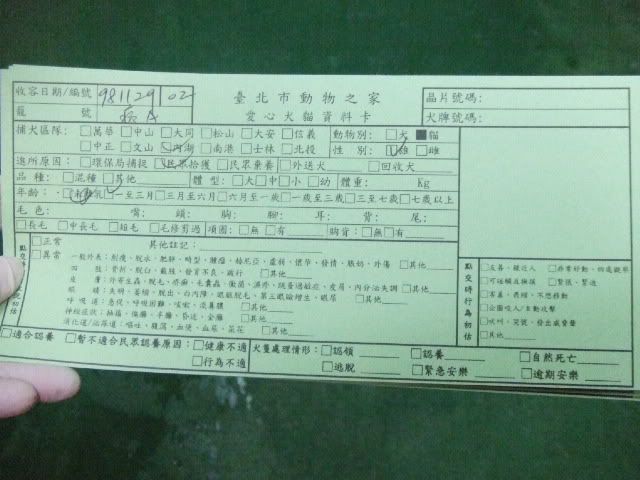 臺北市動物之家
愛心犬貓資料卡
收容日期/編號 981129 02
籠號 病
晶片號碼:
犬牌號碼:
捕犬區隊: □萬華 □中山 □大同 □松山 □大安 □信義 動物別: □犬 ■貓
□中正 □文山 □內湖 □南港 □士林 □北投 性別: □雄 □雌
進所原因: □環保局捕捉 □民眾拾獲 □民眾棄養 □外送犬 □回收犬
品種: □混種 □其他 體型: □大□中□小 □幼 體重: Kg
年齡: □未離乳 □一至三月 □三月至六月 □六月至一歲 □一歲至三歲 □三至七歲 □七歲以上
毛色: 嘴: 頭: 胸: 腳: 耳: 背: 尾:
□長毛 □中長毛 □短毛 □毛修剪過 項圈: □無 □有 胸背: □無□有
□正常 其他註記:
□異常
一般外表: 削瘦、脫水、肥胖、畸型、腫瘤、赫尼亞、虛弱、懷孕、發情、脹奶、外傷 □其他
四肢: 骨折、脫臼、截肢、發育不良、跛行 □其他
皮膚: 外寄生蟲、脫毛、疥癬、毛囊蟲、黴菌、濕疹、跳蚤過敏症、皮屑、內分泌失調 □其他
眼睛: 失明、萎縮、脫出、白內障、眼瞼脫毛、第三眼瞼增生、眼屎 □其他
呼吸道: 急促、呼吸困難、咳嗽、流鼻膿 □其他
神經症狀: 抽搐、偏癱、半癱、昏迷、全癱 □其他
消化道/泌尿道: 嘔吐、飛瀉、血便、血尿、菜花 □其他
點交時行為初估
□友善、親近人 □非常好動、四處觀察
□可碰觸且撫摸 □緊張、緊迫
□害羞、畏縮、不想移動
□企圖咬人/主動攻擊
□吠叫、哭號、發出威脅聲
□其他
□適合認養 □暫不適合民眾認養原因: □健康不適 犬隻處理情形: □認領 □認養 □自然死亡
□行為不適 □逃脫 □緊急安樂 □逾期安樂